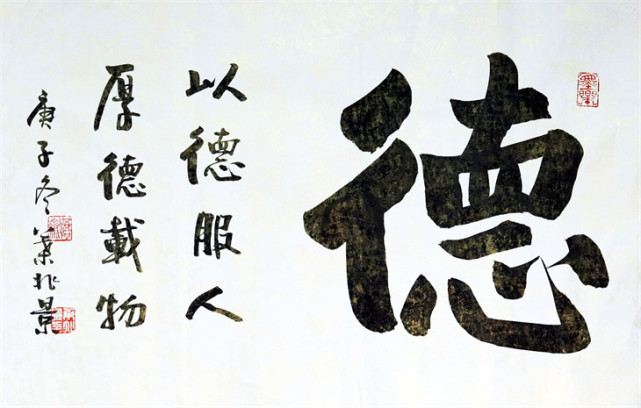 德
以德服人
厚德載物
庚子冬葉兆景